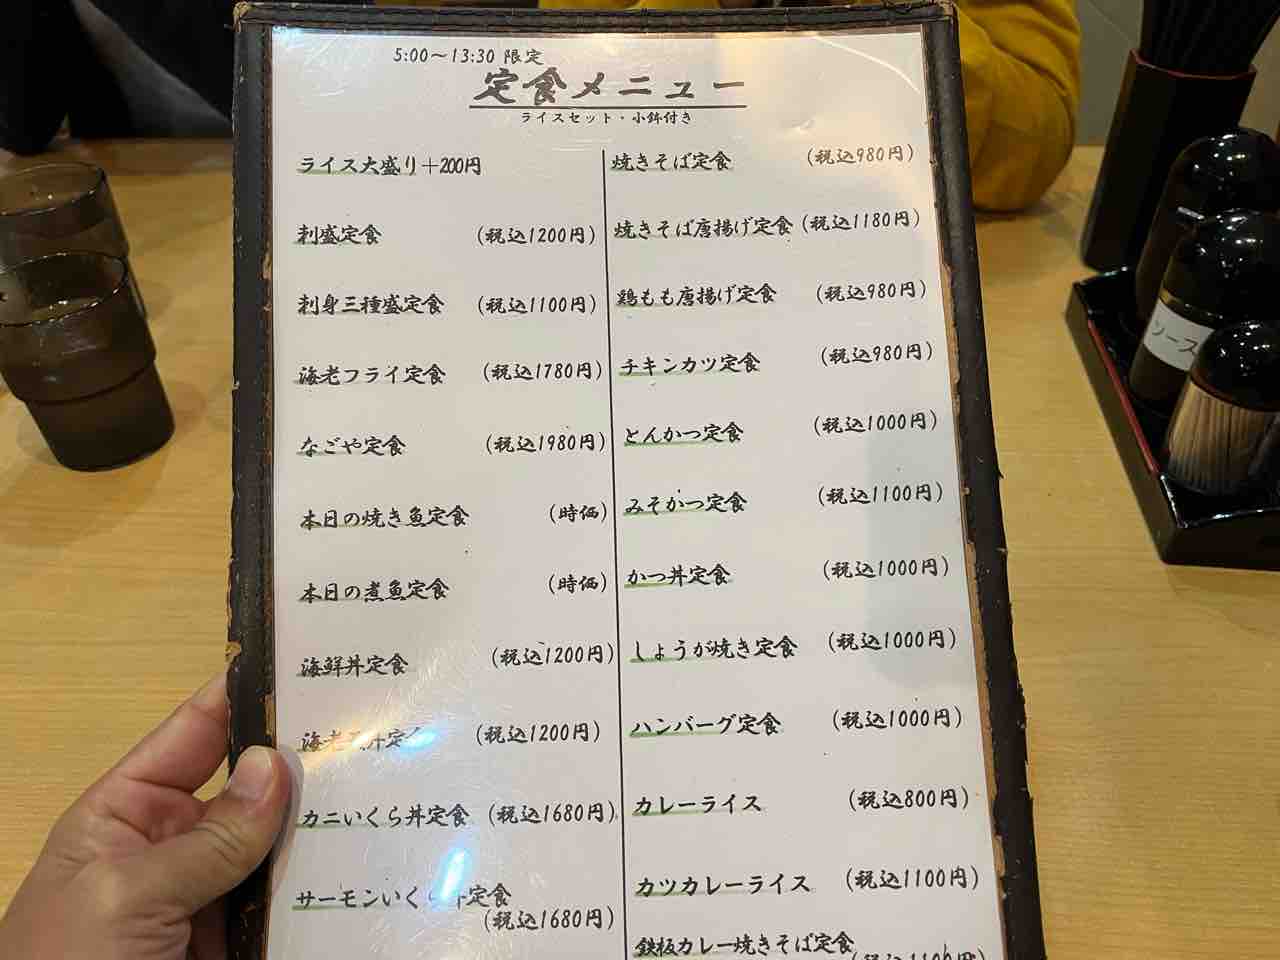 5:00〜13:30 限定
定食メニュー
ライスセット・小鉢付き
ライス大盛り+200円
刺盛定食 (税込1200円)
刺身三種盛定食 (税込1100円)
海老フライ定食 (税込1780円)
なごや定食 (税込1980円)
本日の焼き魚定食 (時価)
本日の煮魚定食 (時価)
海鮮丼定食 (税込1200円)
(税込1200円)
カニいくら丼定食 (税込1680円)
サーモンいくら丼定食
(税込1680円)
焼きそば定食 (税込980円)
焼きそば唐揚げ定食 (税込1180円)
鶏もも唐揚げ定食 (税込980円)
チキンカツ定食 (税込980円)
とんかつ定食 (税込1000円)
みそかつ定食 (税込1100円)
かつ丼定食 (税込1000円)
しょうが焼き定食 (税込1000円)
ハンバーグ定食 (税込1000円)
カレーライス (税込800円)
カツカレーライス (税込1100円)
鉄板カレー焼きそば定食
(税込1100円)
ソース